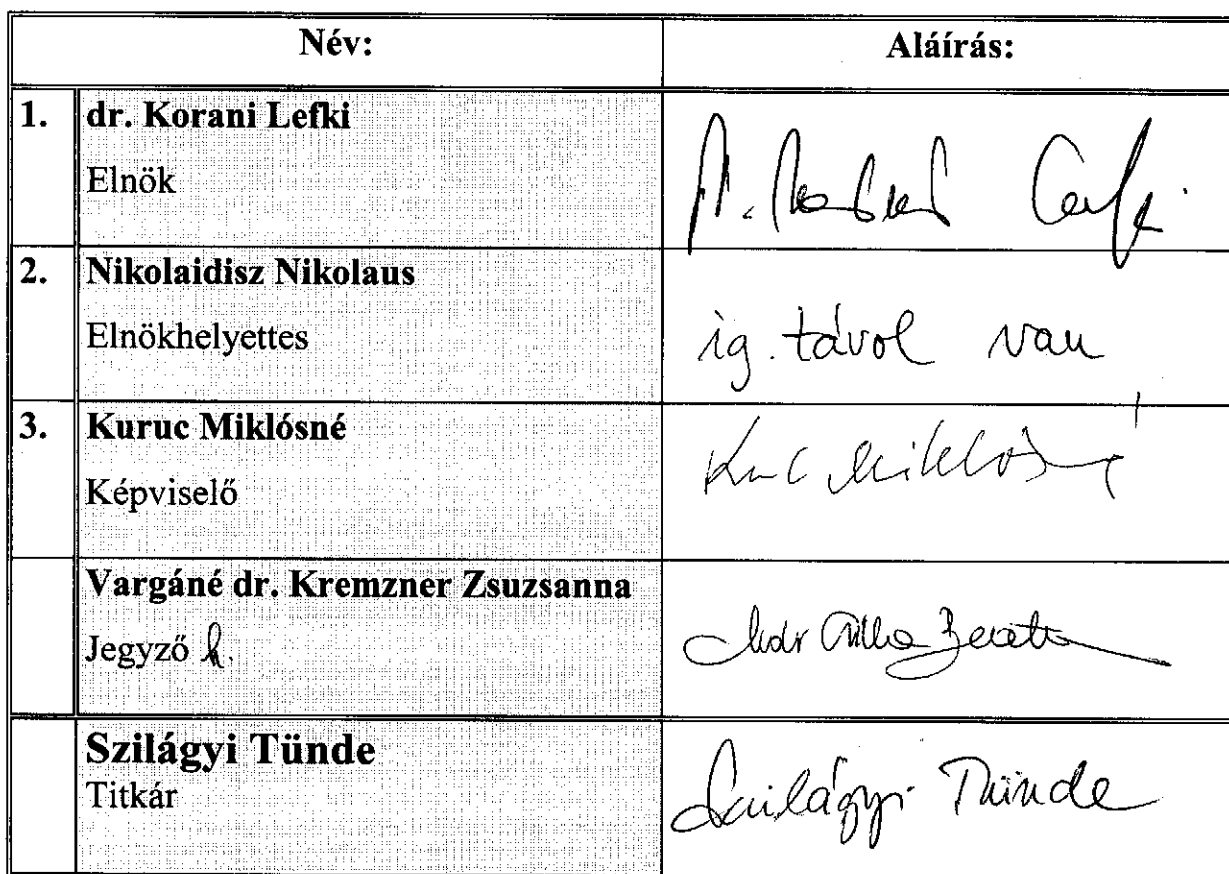 Név: Aláírás:
1. dr. Korani Lefki
Elnök
2. Nikolaidisz Nikolaus
Elnökhelyettes
ig. távol van
3. Kuruc Miklósné
Képviselő
Miklósné
Vargáné dr. Kremzner Zsuzsanna
Jegyző h.
Szilágyi Tünde
Titkár
Szilágyi Tünde